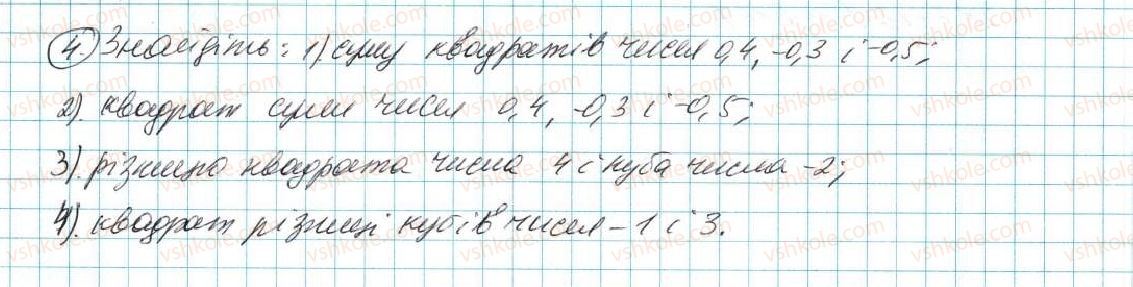 4. Знайдіть: 1) суму квадратів чисел 0,4, -0,3 і -0,5;
2). квадрат суми чисел 0,4, -0,3 і -0,5;
3). різницю квадрата числа 4 і куба числа -2;
4). квадрат різниці кубів чисел -1 і 3.